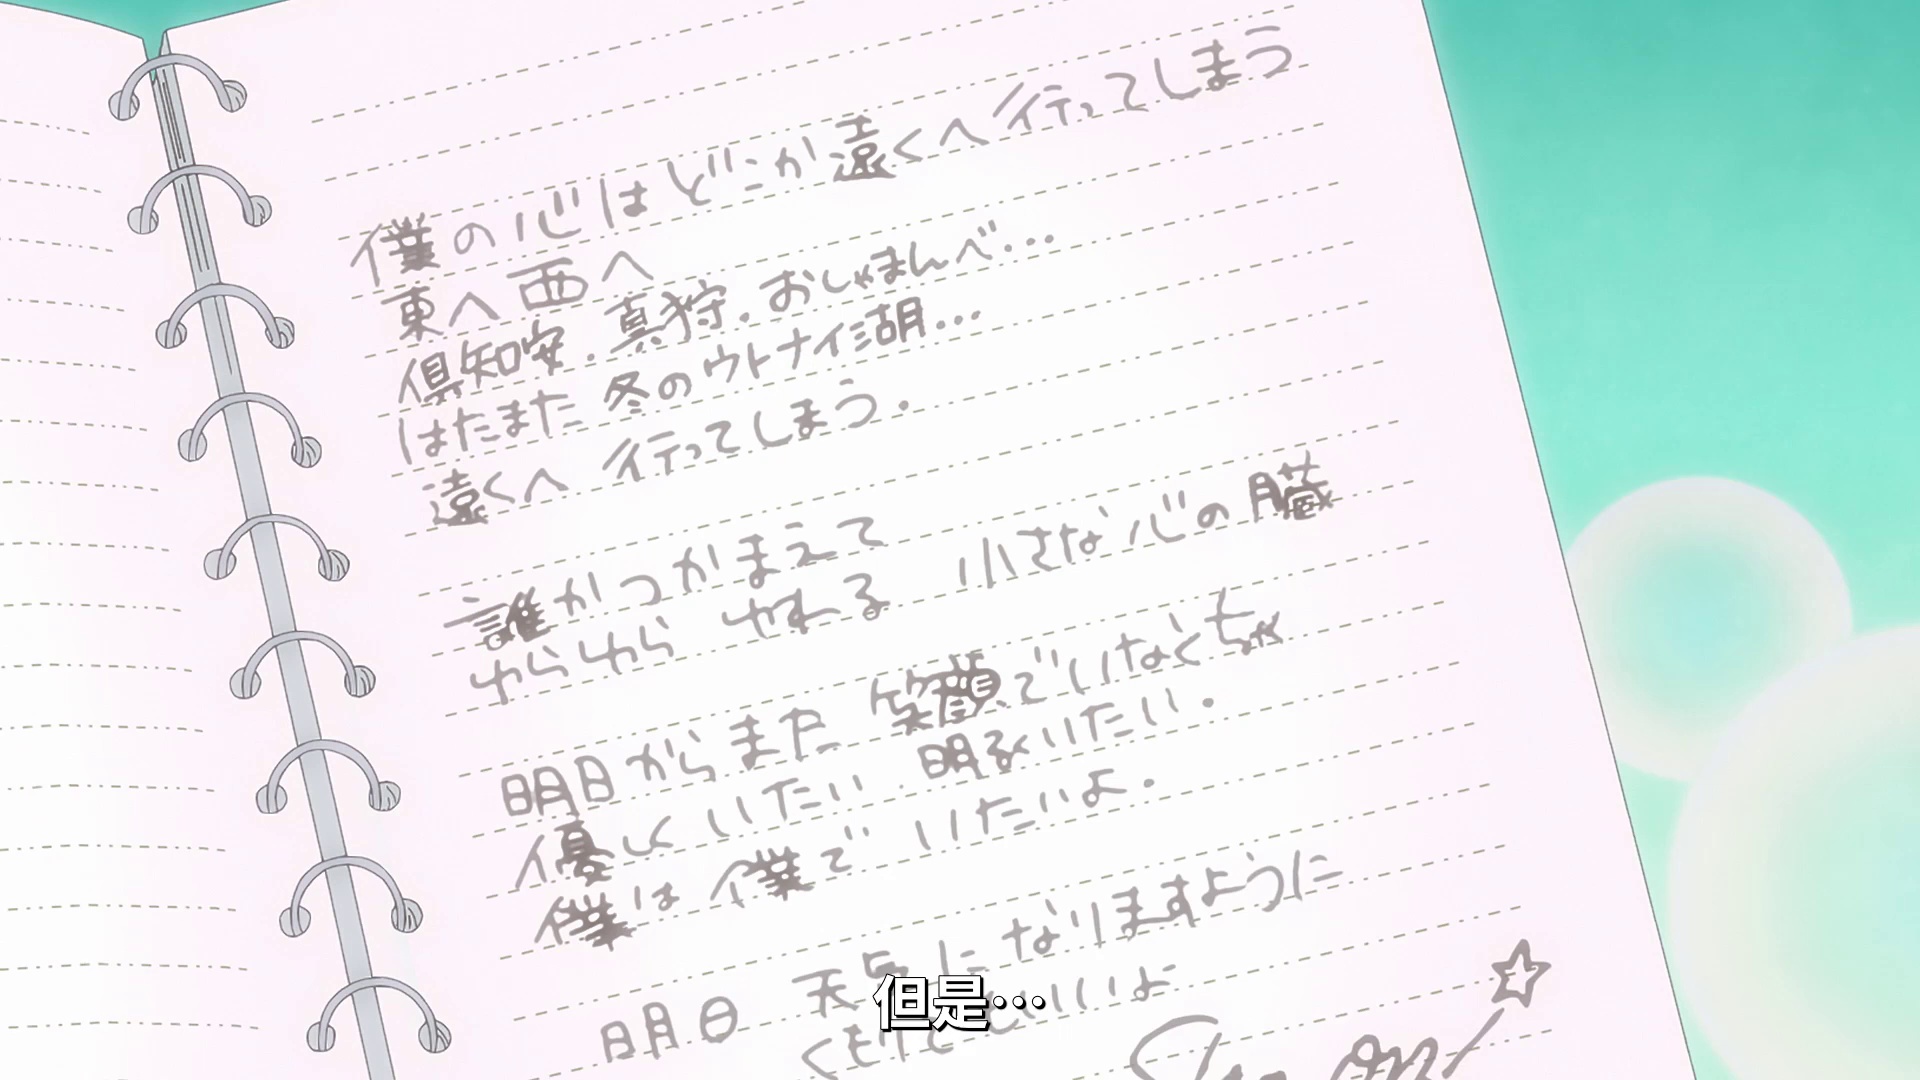 僕の心はどこか遠くへ行ってしまう
東へ西へ
倶知安.真狩.おしゃまんべ…
はたまた 冬のウトナイ湖…
遠くへ 行ってしまう.
誰かつかまえて
ゆらゆら ゆれる 小さな心の臓
明日からまた 笑顔でいなくちゃ
優しくいたい.明るくいたい.
僕は僕で いたいよ.
明日 天気になりますように
くもりでもいいよ
但是…